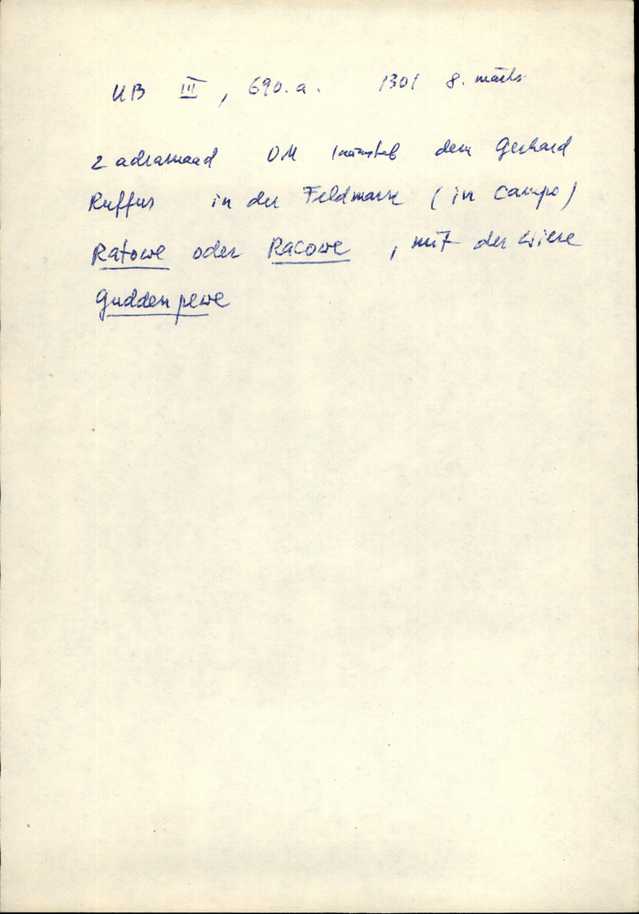 UB III, 690.a. 1301 8. märts
2 adramaad OM läänistab dem Gerhard
Ruffus in der Feldmark (in campo)
Ratowe oder Racowe, mit der Wiese
Guddenpewe